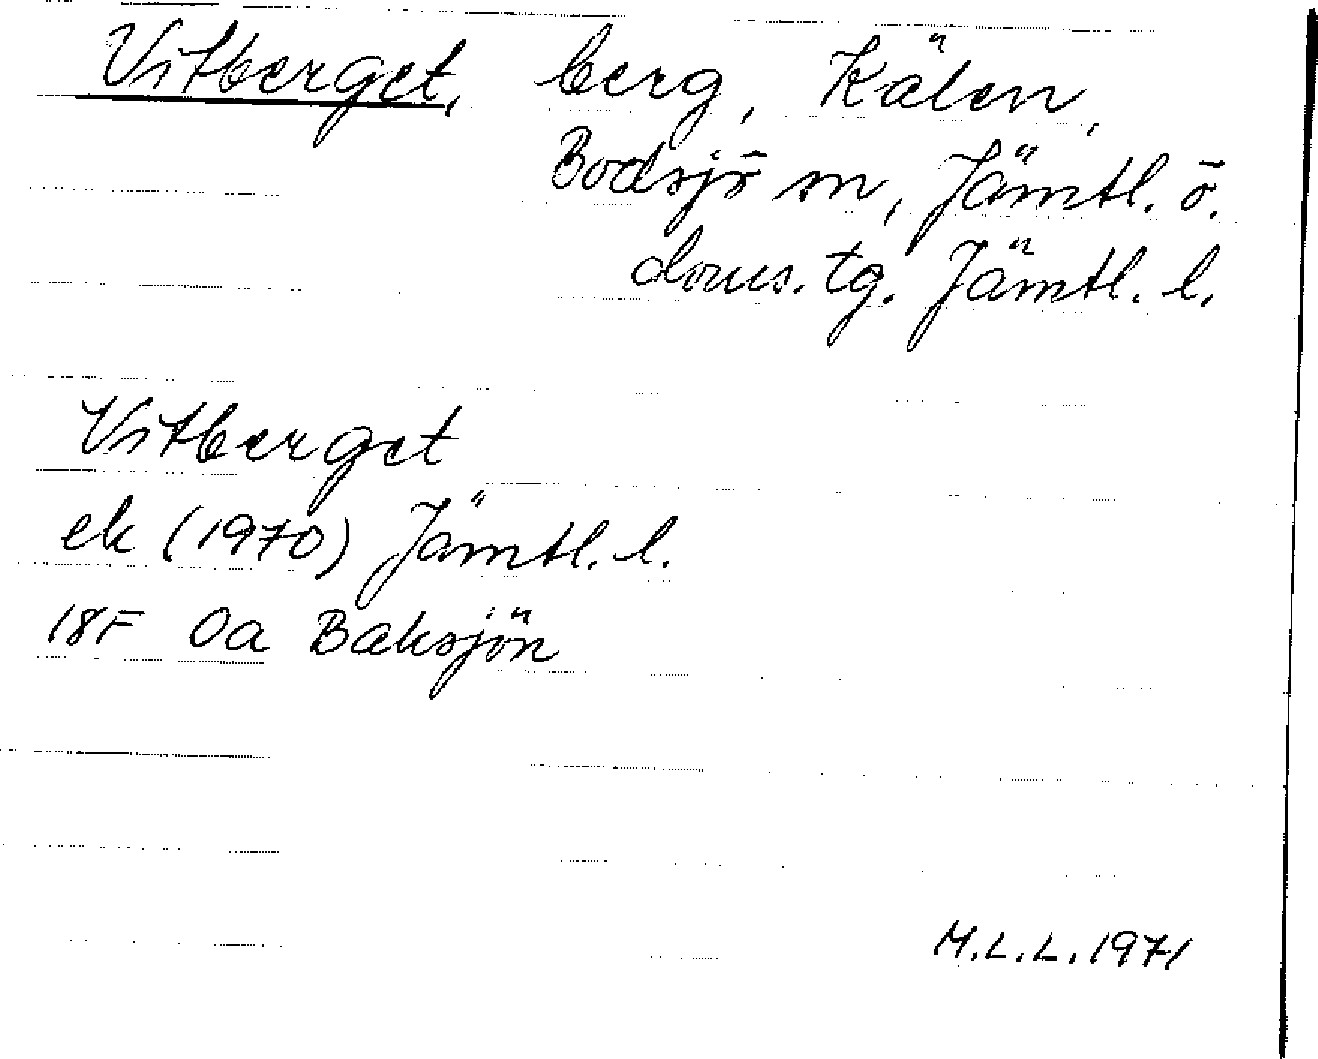 Vitberget, berg, Kälen,
Bodsjö sn, Jämtl. ö.
doms. tg. Jämtl. l.
Vitberget
ek (1970) Jämtl. l.
18F 0a Baksjön
M.L.L. 1971